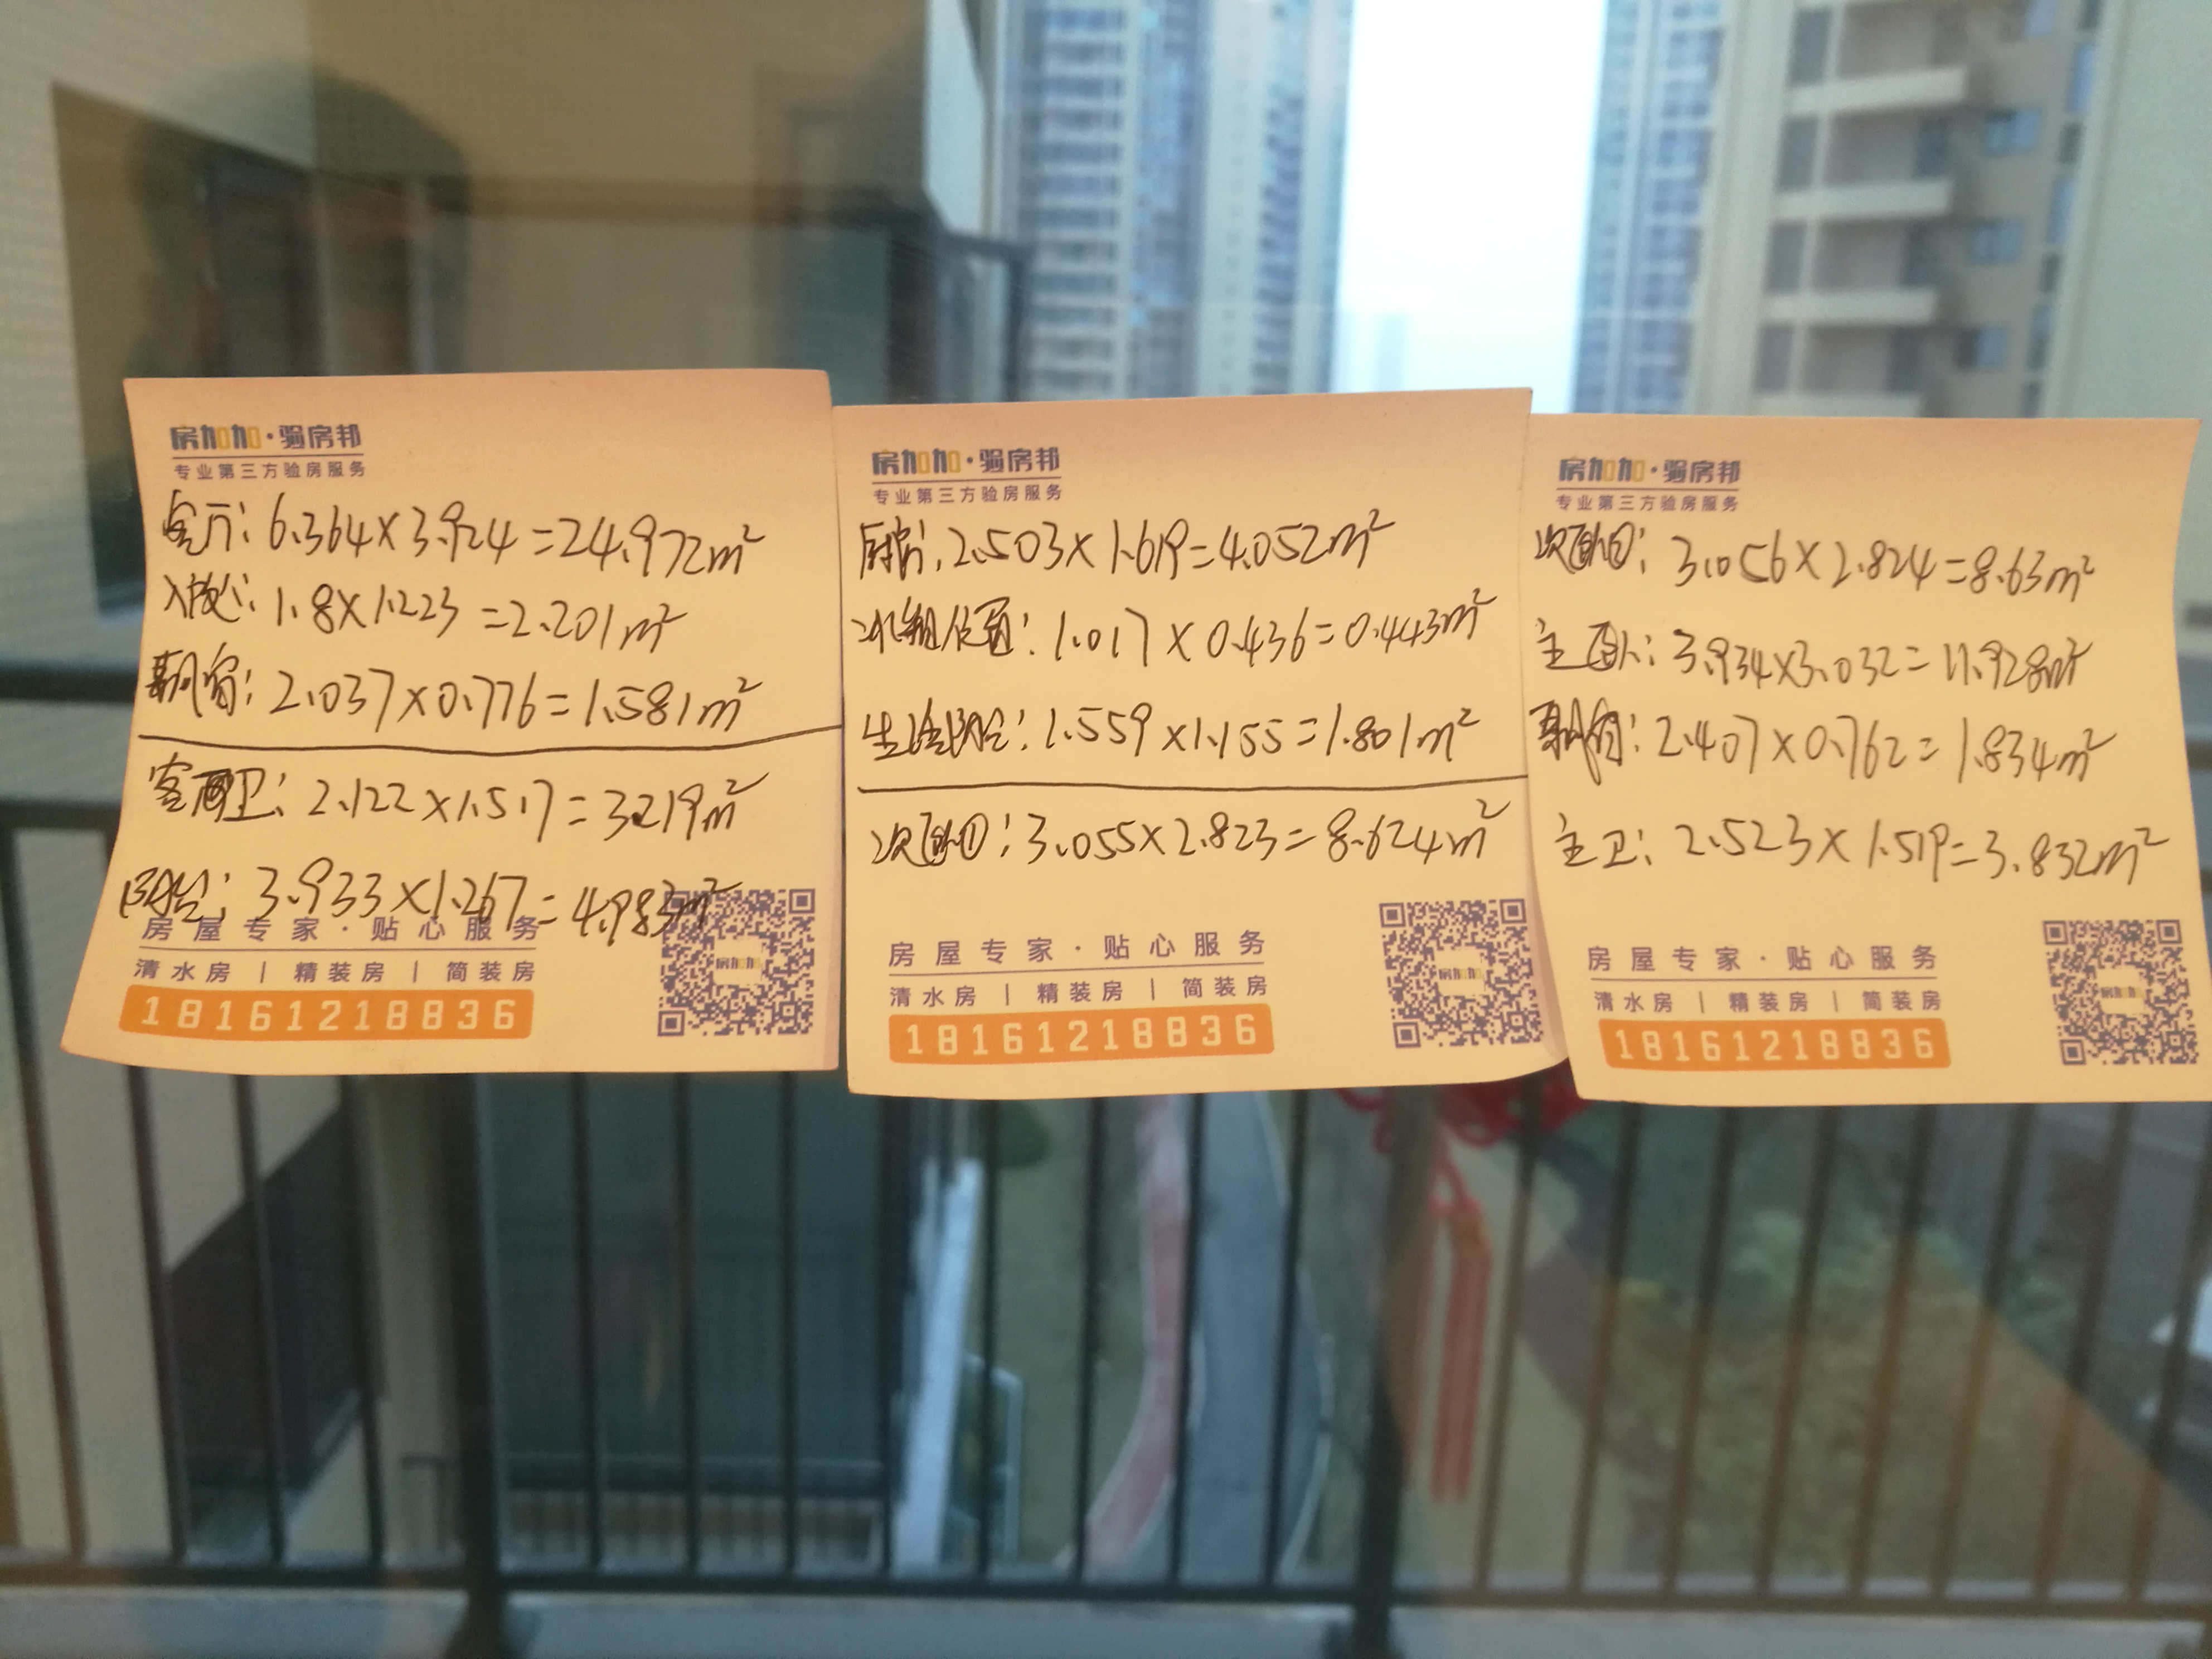 房加加·验房邦
专业第三方验房服务
客厅: 6.364×3.924=24.972m²
入户: 1.8×1.223=2.201m²
飘窗: 2.037×0.776=1.581m²
客卫: 2.122×1.517=3.219m²
阳台: 3.933×1.267=4.983m²
房屋专家·贴心服务
清水房 | 精装房 | 简装房
18161218836
房加加
房加加·验房邦
专业第三方验房服务
厨房: 2.503×1.619=4.052m²
冰箱位置: 1.017×0.436=0.443m²
生活阳台: 1.559×1.155=1.801m²
次卧①: 3.055×2.823=8.624m²
房屋专家·贴心服务
清水房 | 精装房 | 简装房
18161218836
房加加
房加加·验房邦
专业第三方验房服务
次卧②: 3.056×2.824=8.63m²
主卧: 3.934×3.032=11.928m²
飘窗: 2.407×0.762=1.834m²
主卫: 2.523×1.519=3.832m²
房屋专家·贴心服务
清水房 | 精装房 | 简装房
18161218836
房加加